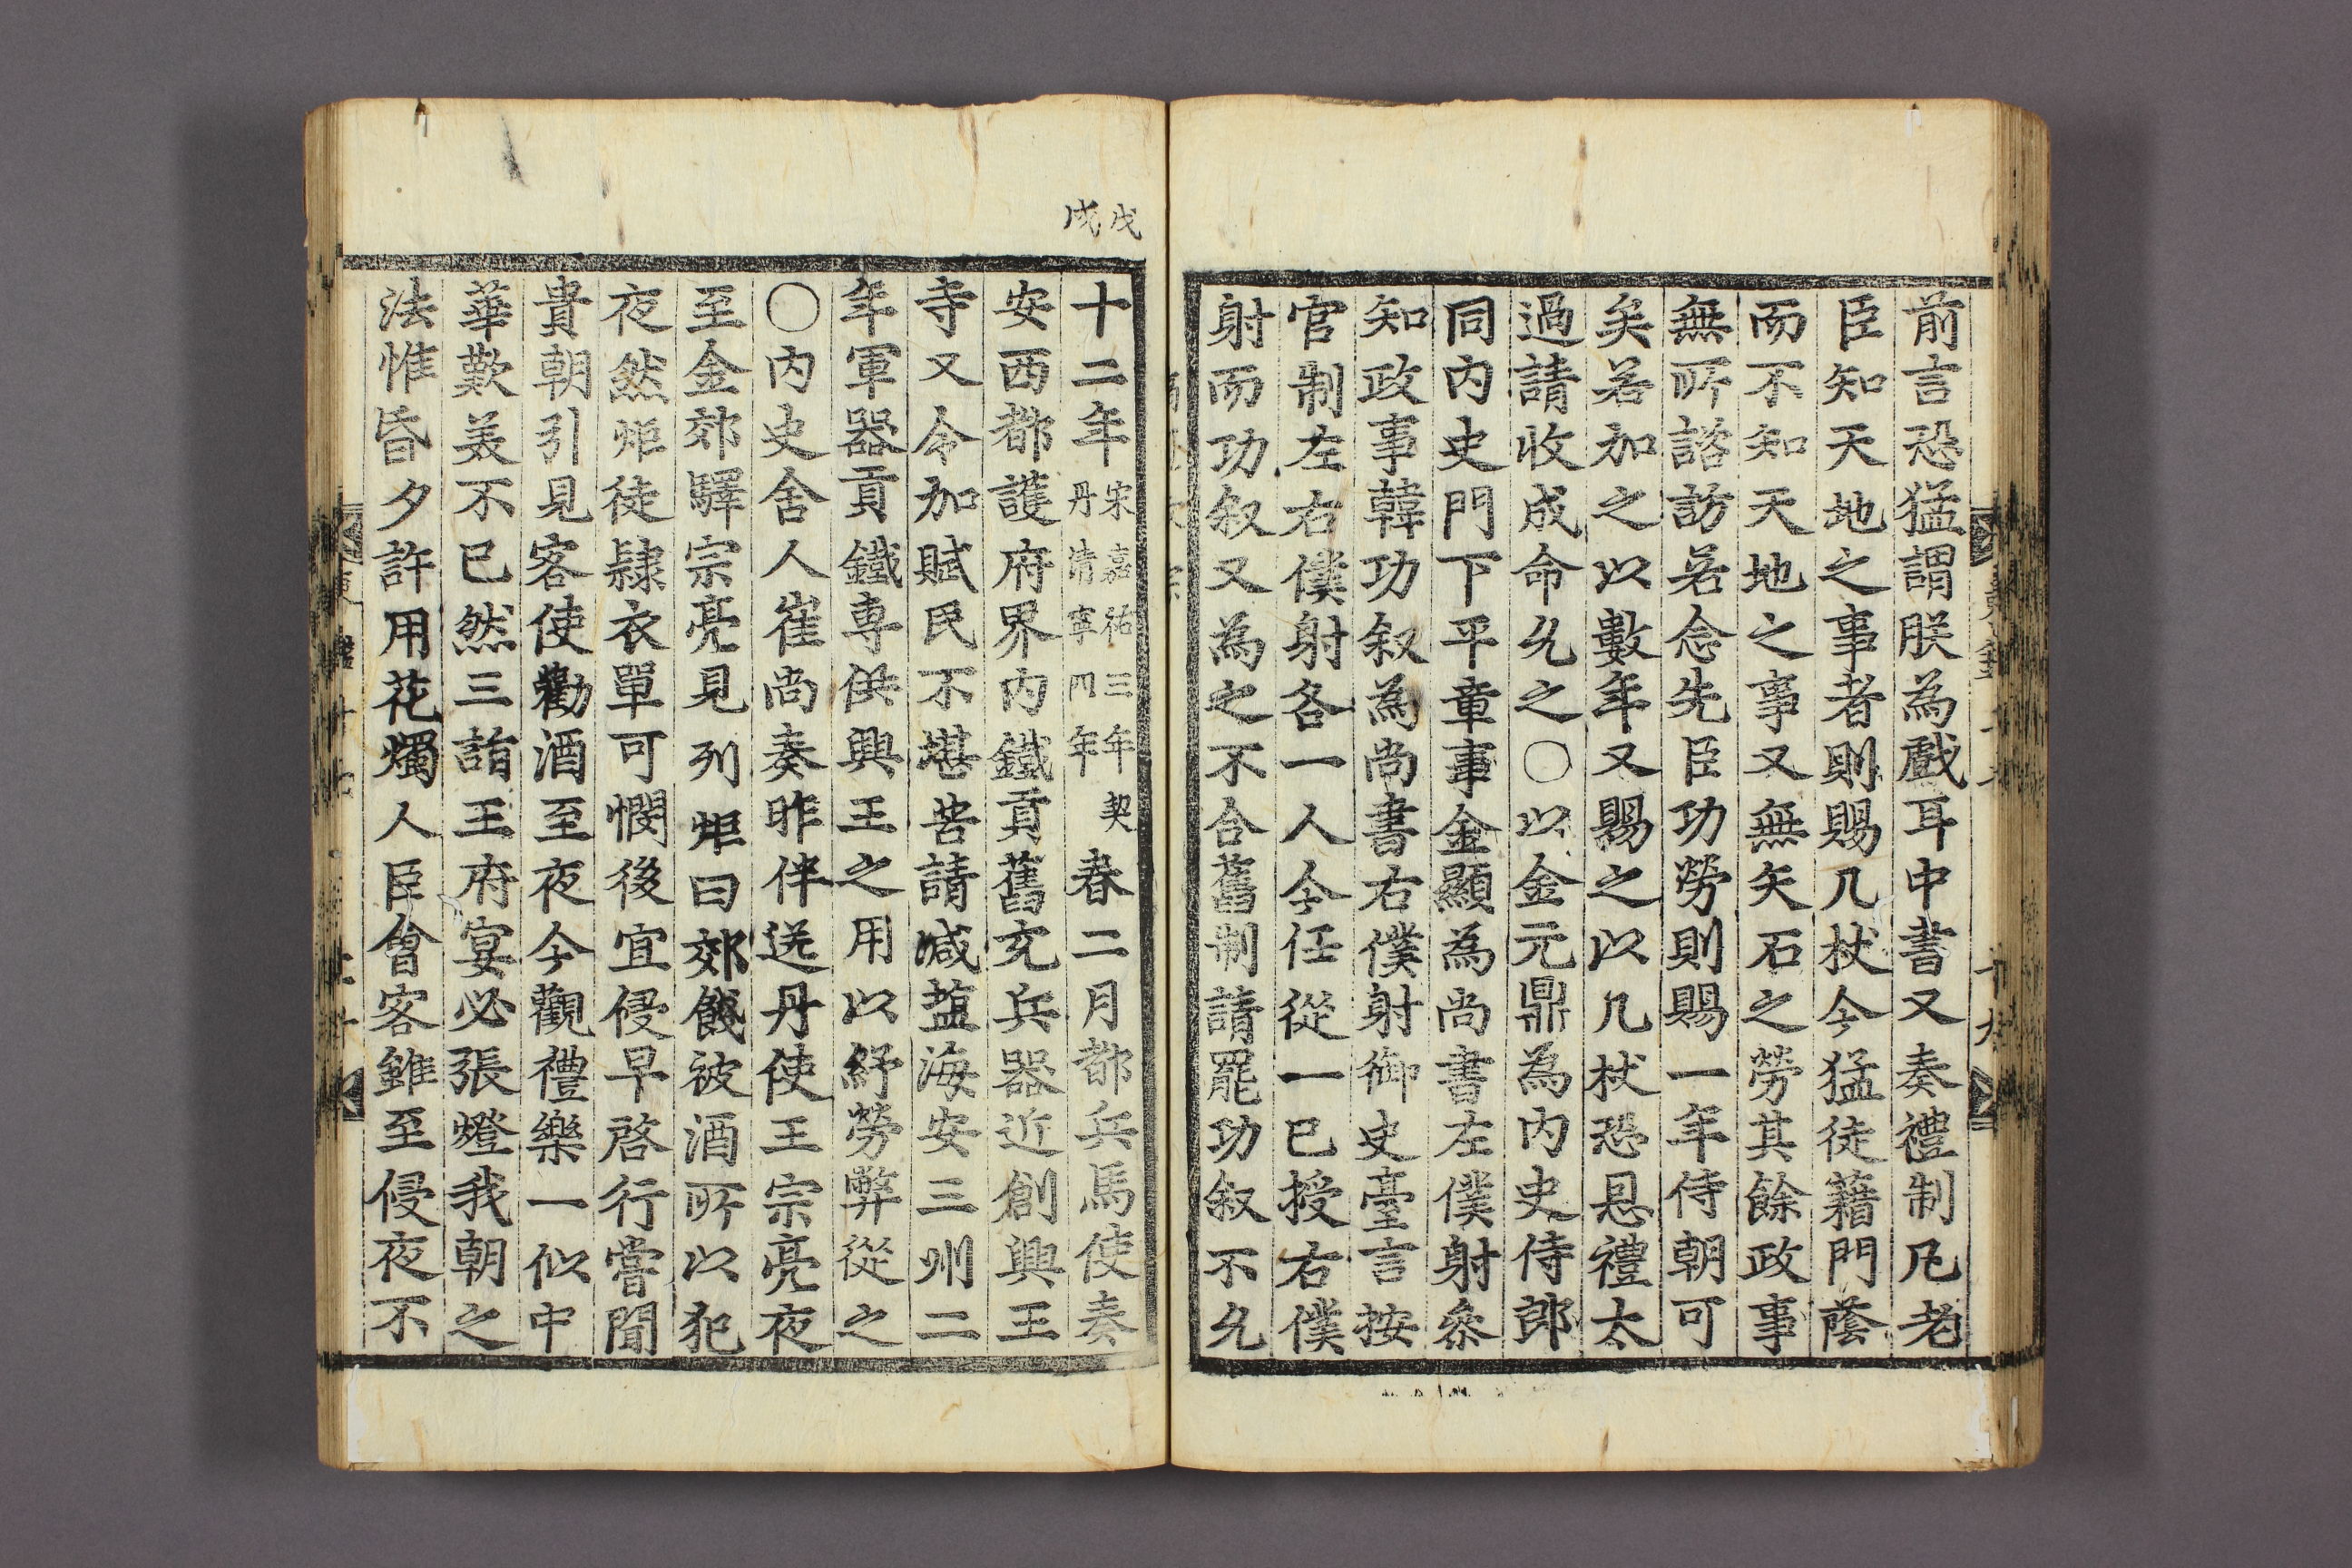 前言恐猛謂朕為戲耳中書又奏禮制凡老
臣知天地之事者則賜几杖今猛徒藉門蔭
而不知天地之事又無矢石之勞其餘政事
無所諮訪若念先臣功勞則賜一年侍朝可
矣若加之以數年又賜之以几杖恐恳禮太
過請收成命允之〇以金元鼎為內史侍郎
同內史門下平章事金顯為尚書左僕射叅
知政事韓功叙為尚書右僕射御史臺言按
官制左右僕射各一人今任從一已授右僕
射而功叙又為之不合舊制請罷功叙不允
戊
戌
十二年宋嘉祐三年契丹清寧四年春二月都兵馬使奏
安西都護府界內鐵貢舊充兵器近創興王
寺又令加賦民不堪苦請減塩海安三州二
年軍器貢鐵專供興王之用以紓勞弊從之
〇內史舍人崔尚奏昨伴送丹使王宗亮夜
至金郊驛宗亮見列炬曰郊餞被酒所以犯
夜然炬徒隷衣單可憫後宜侵早啓行嘗聞
貴朝引見客使勸酒至夜今觀禮樂一似中
華歎美不已然三詣王府宴必張燈我朝之
法惟昏夕許用花燭人臣會客雖至侵夜不